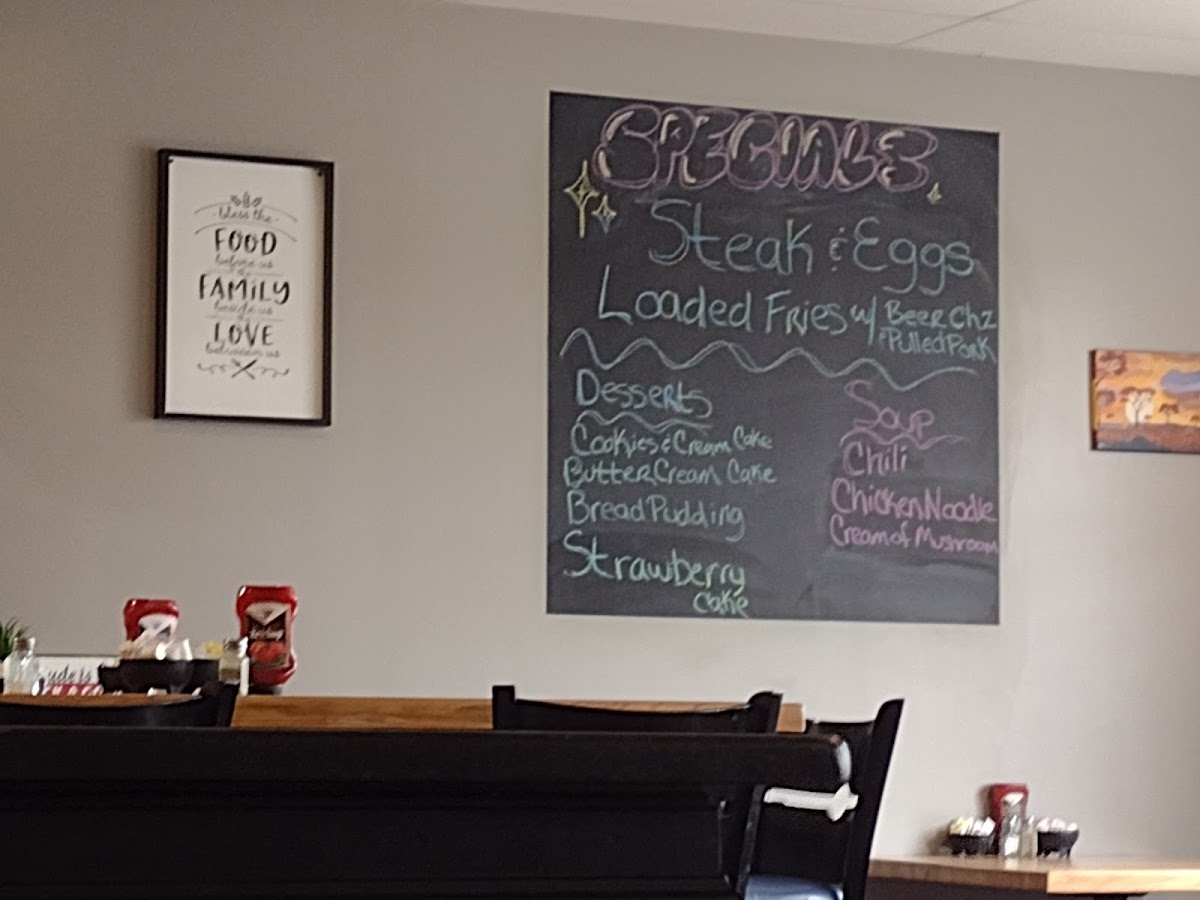 bless the
FOOD
before us
the
FAMILY
beside us
the
LOVE
between us
SPECIALS
Steak & Eggs
Loaded Fries w/ Beer Chz
& Pulled Pork
Desserts
Cookies & Cream Cake
Butter Cream Cake
Bread Pudding
Strawberry
Cake
Soup
Chili
Chicken Noodle
Cream of Mushroom
Ketchup
ude is